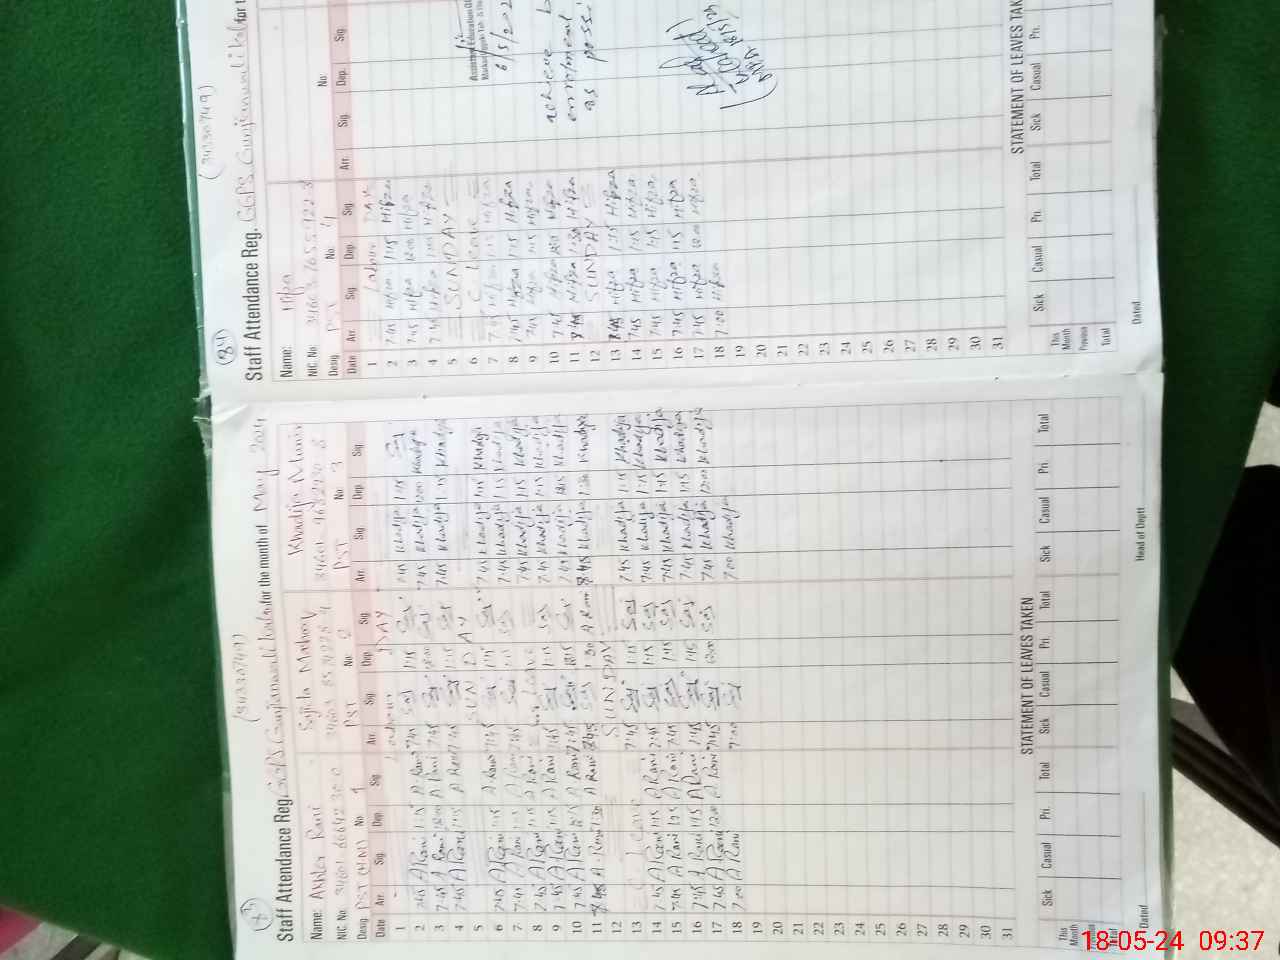 (83)
(34330749)
Staff Attendance Reg. GGPS Gunjianwali for the month of May 2024
Name: Akhter Rani Sajida Khadija Munir
NIC No.
Desig PST (HM) No 1 PST No 2 PST No 3
Date Arr. Sig. Dep. Sig. Arr. Sig Dep. Sig. Arr. Sig. Dep. Sig.
1 Labour DAY
2 7:45 A Rani 1:15 A Rani 7:45 Saj 1:15 Saj 7:45 Khadija 1:15
3 7:45 A Rani 12:00 A Rani 7:45 Saj 12:00 Saj 7:45 Khadija 12:00 Khadija
4 7:45 A Rani 1:15 A Rani 7:45 Saj 1:15 Saj 7:45 Khadija 1:15 Khadija
5 SUNDAY
6 7:45 A Rani 1:15 A Rani 7:45 Saj 1:15 Saj 7:45 Khadija 1:15 Khadija
7 7:45 A Rani 1:15 A Rani 7:45 Saj 1:15 Saj 7:45 Khadija 1:15 Khadija
8 7:45 A Rani 1:15 A Rani Leave 7:45 Khadija 1:15 Khadija
9 7:45 A Rani 1:15 A Rani 7:45 Saj 1:15 Saj 7:45 Khadija 1:15 Khadija
10 7:45 A Rani 12:15 A Rani 7:45 Saj 12:15 Saj 7:45 Khadija 12:15 Khadija
11 8:45 A. Rani 1:30 A Rani 8:45 Saj 1:30 A Rani 8:45 Khadija 1:30 Khadija
12 SUNDAY
13 C. Leave 7:45 Saj 1:15 Saj 7:45 Khadija 1:15 Khadija
14 7:45 A Rani 1:15 A Rani 7:45 Saj 1:15 Saj 7:45 Khadija 1:15 Khadija
15 7:45 A Rani 1:15 A Rani 7:45 Saj 1:15 Saj 7:45 Khadija 1:15 Khadija
16 7:45 A Rani 1:15 A Rani 7:45 Saj 1:15 Saj 7:45 Khadija 1:15 Khadija
17 7:45 A Rani 12:00 A Rani 7:45 Saj 12:00 Saj 7:45 Khadija 12:00 Khadija
18 7:00 A Rani 7:00 Saj 7:00 Khadija
19
20
21
22
23
24
25
26
27
28
29
30
31
STATEMENT OF LEAVES TAKEN
Sick Casual Pri. Total Sick Casual Pri. Total Sick Casual Pri. Total
This Month
Previous
Total
Dated Head of Deptt
(84)
(34330749)
Staff Attendance Reg. GGPS Gunjianwali for t
Name: Hifza
NIC No
Desig PST No 4 No:
Date Arr. Sig Dep. Sig Arr. Sig. Dep. Sig.
1 Labour DAY
2 7:45 Hifza 1:15 Hifza
3 7:45 Hifza 12:00 Hifza
4 7:45 Hifza 1:15 Hifza
5 SUNDAY
6 C Leave
7 7:45 Hifza 1:15 Hifza
8 7:45 Hifza 1:15 Hifza
9 7:45 Hifza 1:15 Hifza
10 7:45 Hifza 12:15 Hifza
11 8:45 Hifza 1:30 Hifza
12 SUNDAY
13 7:45 Hifza 1:15 Hifza
14 7:45 Hifza 1:15 Hifza
15 7:45 Hifza 1:15 Hifza
16 7:45 Hifza 1:15 Hifza
17 7:45 Hifza 12:00 Hifza
18 7:00 Hifza
19
20
21
22
23
24
25
26
27
28
29
30
31
Assistant Education
6/5/202
achieve
enrolment
as poss
18/5/24
STATEMENT OF LEAVES TAK
Sick Casual Pri. Total Sick Casual Pri.
This Month
Previous
Total
Dated
18-05-24 09:37